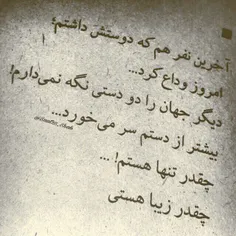 آخرین نفر هم که دوستش داشتم؛
امروز وداع کرد...
دیگر جهان را دو دستی نگه نمی‌دارم!
بیشتر از دستم سر می‌خورد...
چقدر تنها هستم! ...
چقدر زیبا هستی